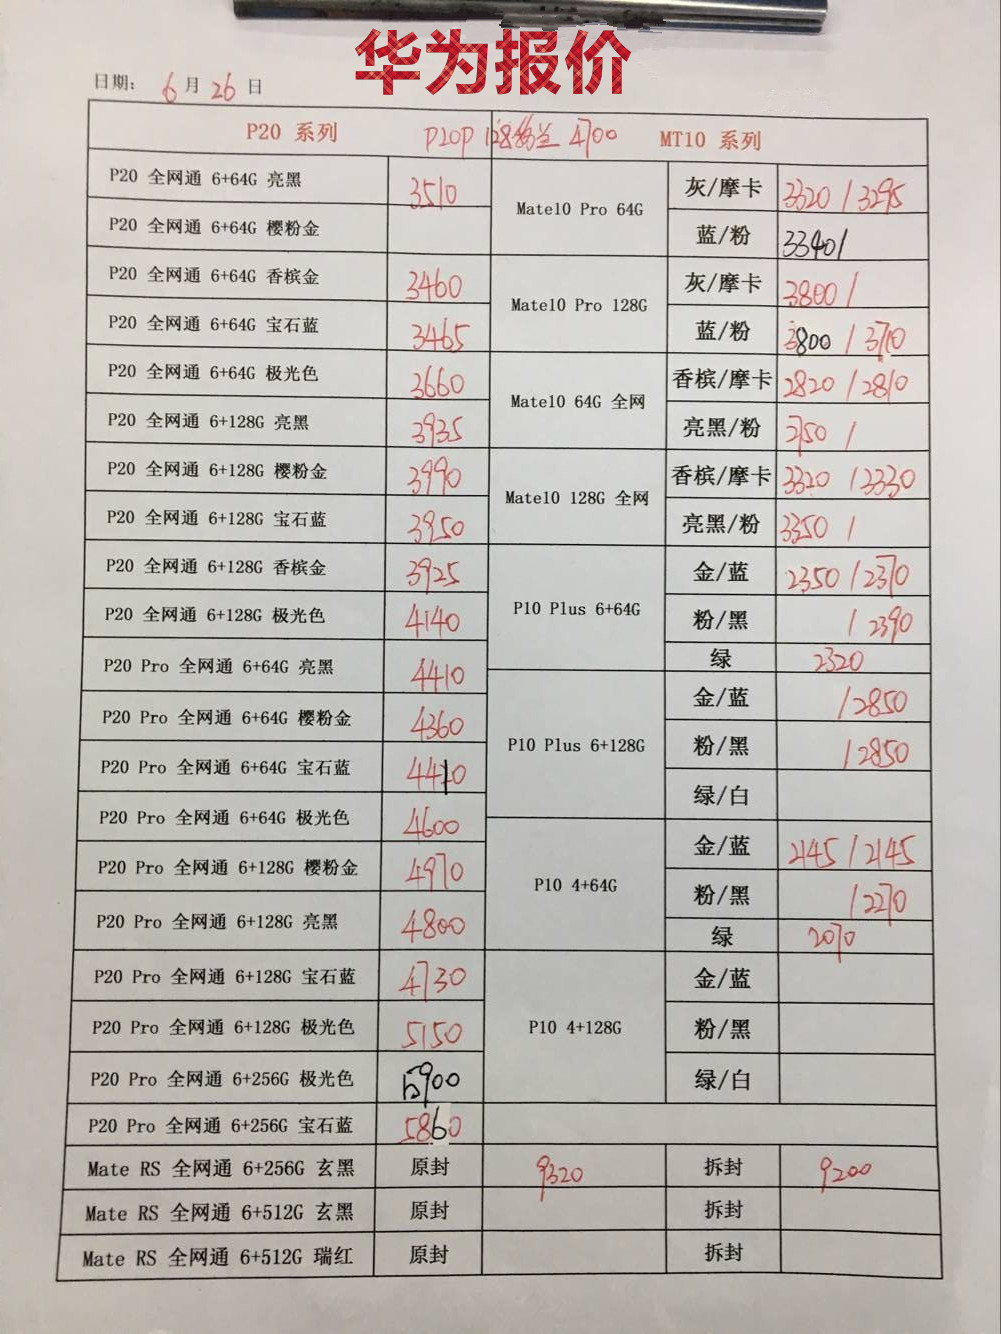 华为报价
日期: 6 月 26 日
P20 系列 P20P 128 4700 MT10 系列
P20 全网通 6+64G 亮黑 3510
P20 全网通 6+64G 樱粉金
P20 全网通 6+64G 香槟金 3460
P20 全网通 6+64G 宝石蓝 3465
P20 全网通 6+64G 极光色 3660
P20 全网通 6+128G 亮黑 3935
P20 全网通 6+128G 樱粉金 3990
P20 全网通 6+128G 宝石蓝 3950
P20 全网通 6+128G 香槟金 3925
P20 全网通 6+128G 极光色 4140
P20 Pro 全网通 6+64G 亮黑 4410
P20 Pro 全网通 6+64G 樱粉金 4360
P20 Pro 全网通 6+64G 宝石蓝 4410
P20 Pro 全网通 6+64G 极光色 4600
P20 Pro 全网通 6+128G 樱粉金 4970
P20 Pro 全网通 6+128G 亮黑 4800
P20 Pro 全网通 6+128G 宝石蓝 4730
P20 Pro 全网通 6+128G 极光色 5150
P20 Pro 全网通 6+256G 极光色 5900
P20 Pro 全网通 6+256G 宝石蓝 5860
Mate10 Pro 64G
灰/摩卡 3320 / 3295
蓝/粉 3340/
Mate10 Pro 128G
灰/摩卡 3800 /
蓝/粉 3800 / 3710
Mate10 64G 全网
香槟/摩卡 2820 / 2810
亮黑/粉 2750 /
Mate10 128G 全网
香槟/摩卡 3320 / 3330
亮黑/粉 3350 /
P10 Plus 6+64G
金/蓝 2350 / 2370
粉/黑 / 2390
绿 2320
P10 Plus 6+128G
金/蓝 / 2850
粉/黑 / 2850
绿/白
P10 4+64G
金/蓝 2145 / 2145
粉/黑 / 2270
绿 2070
P10 4+128G
金/蓝
粉/黑
绿/白
Mate RS 全网通 6+256G 玄黑 原封 9320 拆封 9200
Mate RS 全网通 6+512G 玄黑 原封 拆封
Mate RS 全网通 6+512G 瑞红 原封 拆封